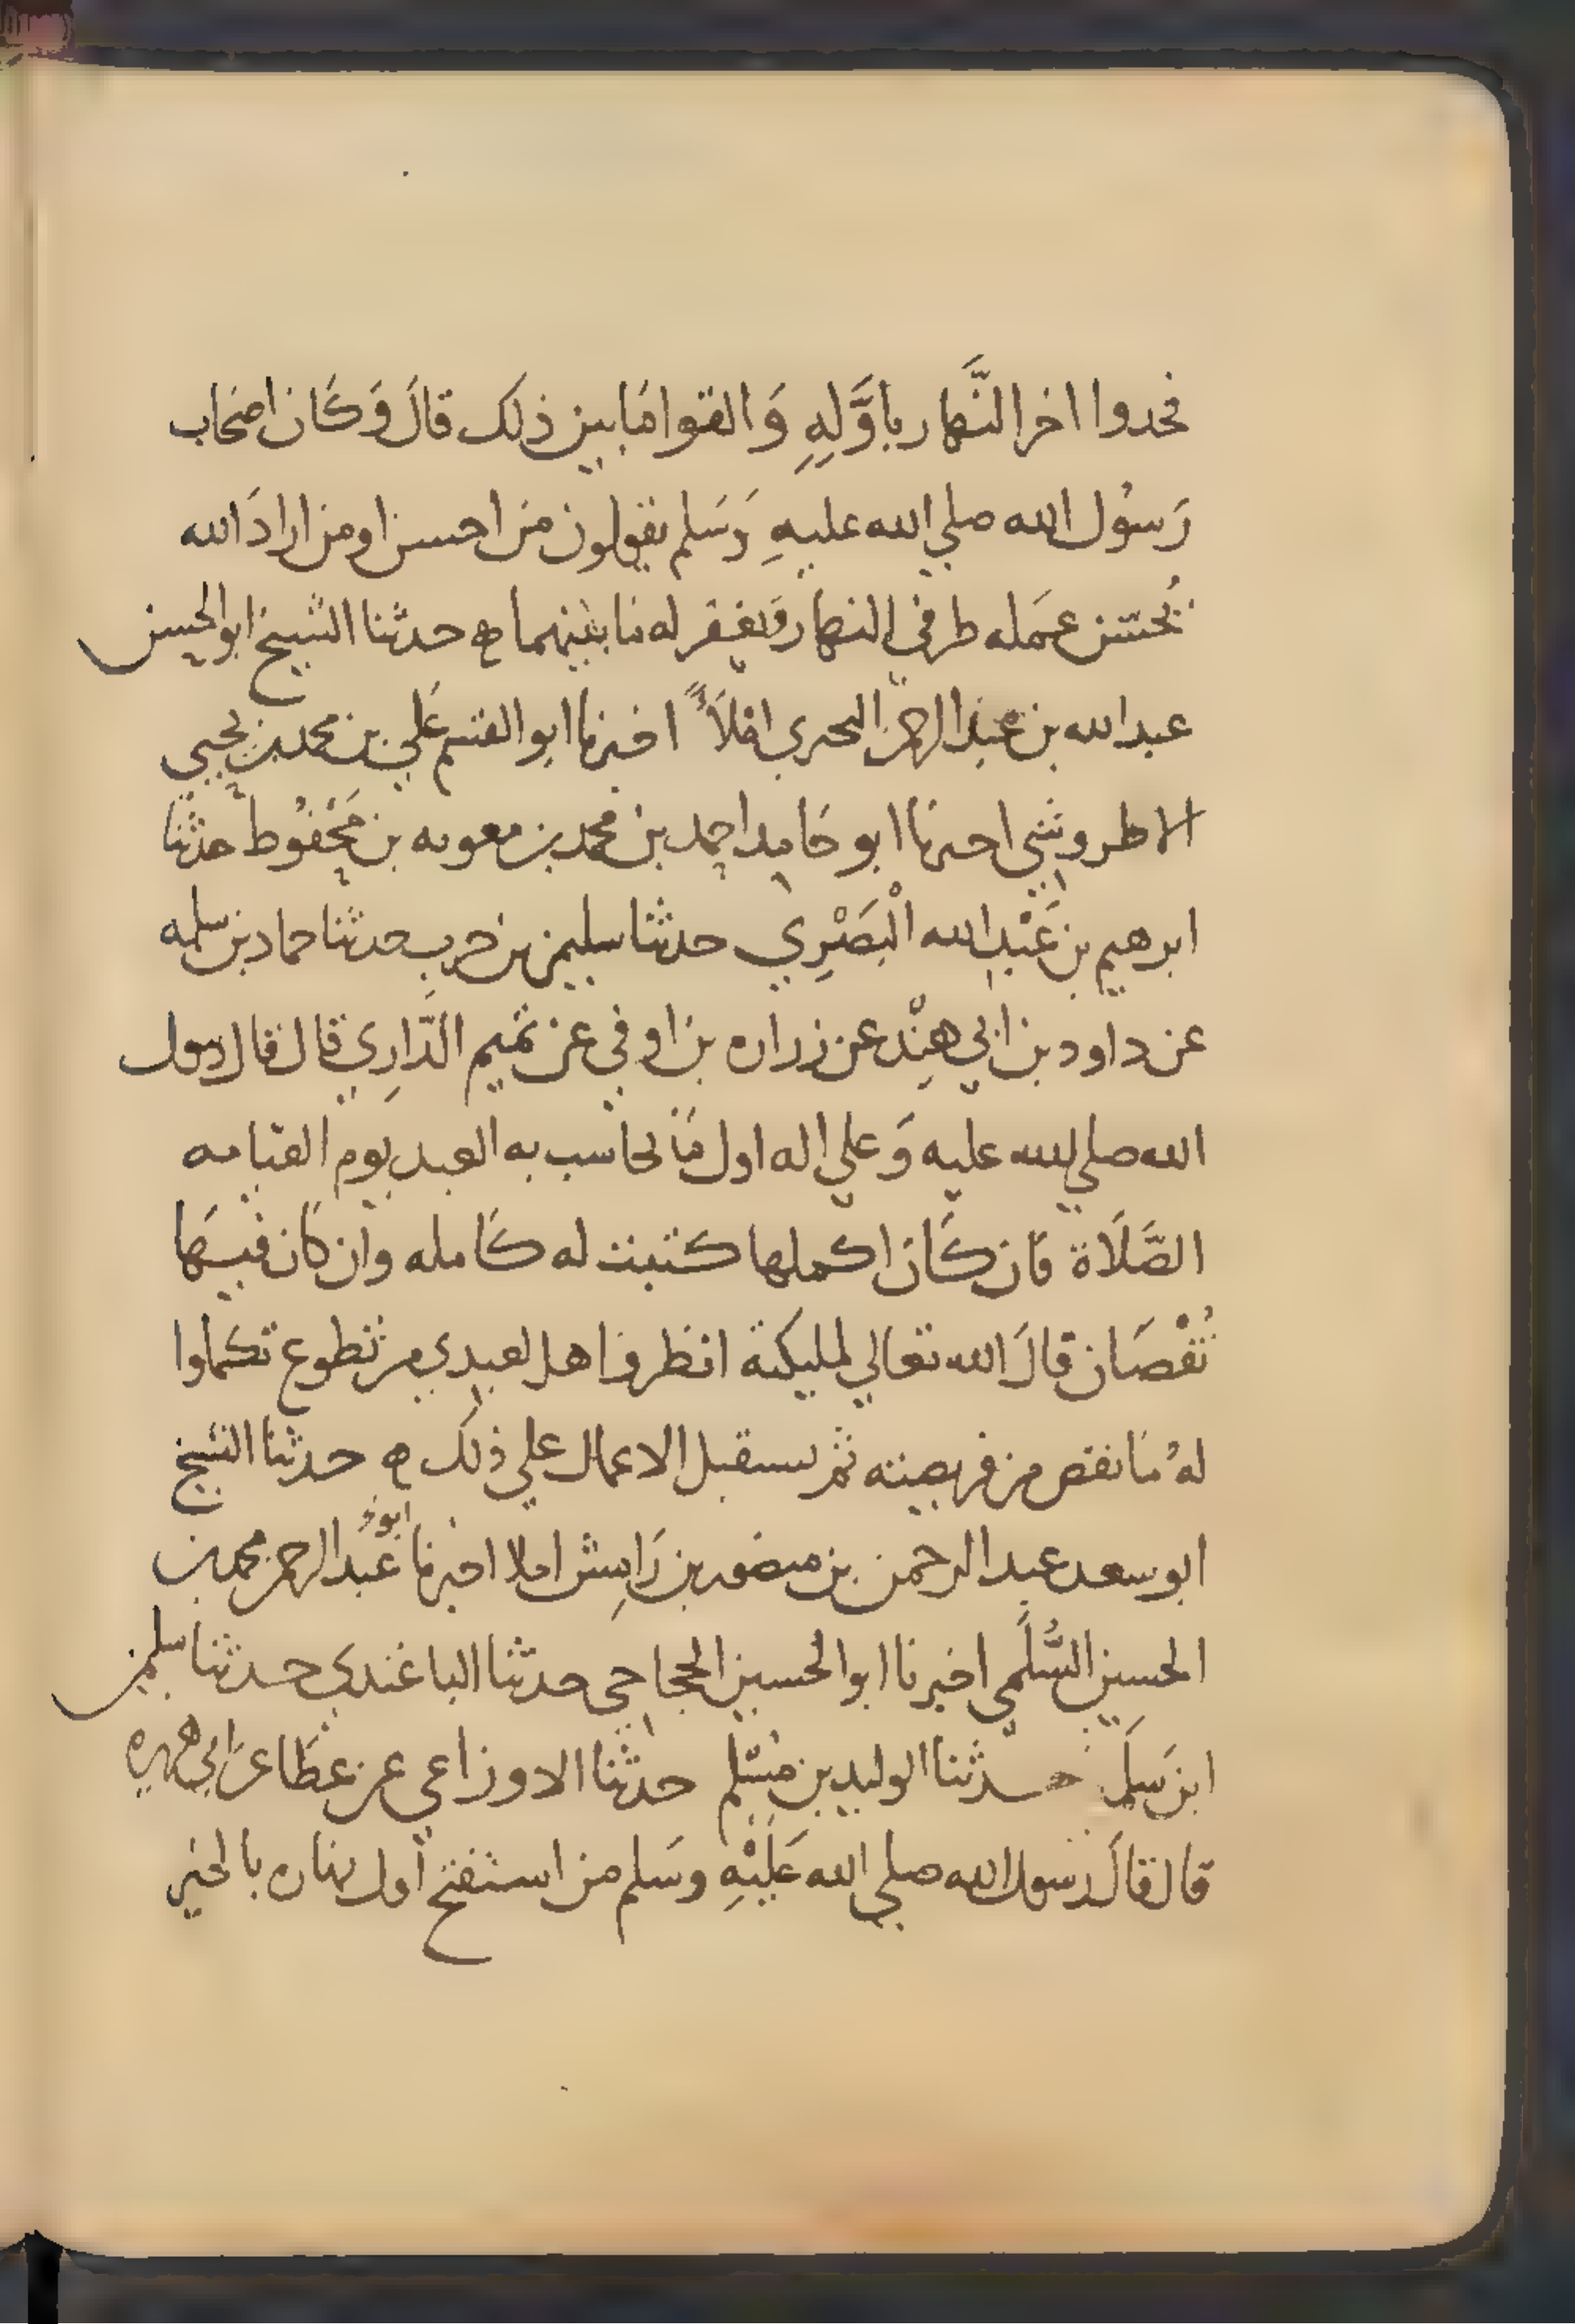 فخدوا اخر النَّهار باوَّلهِ وَالقوا مَا بين ذلك قالَ وَكَان اصحَاب
رَسوُل الله صلي الله عليهِ وَسَلم يقولون من احسن او من ارادَ الله
يُحسن عمَله طرفي النهار ويغفر له ما بينهما ه حدثنا الشيخ ابو الحسن
عبد الله بن عبد الرحمن البحري املاءً اخبرنا ابو القسم عَلي بن محمد بن يحيي
الاطروشي احبرنا ابو حَامِد احمد بن محمد بن معويه بن مَحْفُوظ حدثنا
ابرهيم بن عَبْد الله الْبَصْرِي حدثنا سليمن بن حرب حدثنا حماد بن سلمه
عن داود بن ابي هِنْد عن زراره بن اوفي عن تميم الدَّارِي قال قال رسول
الله صلي الله عليه وَعلي اله اول مَا يحاسب به العبد يوم القيامه
الصَّلَاة فان كَان اكملها كتبت له كَامله وان كان فيهَا
نُقْصَان قالَ الله تعالي لمليكته انظروا هل لعبدي من تطوع تكملوا
لهُ مَا نقص من فريضته ثم يستقبل الاعمال علي ذلك ه حدثنا الشيخ
ابو سعد عبد الرحمن بن منصور بن رَامِش املا اخبرنا ابو عَبد الرحمن محمد بن
الحسين السُّلَمي اخبرنا ابو الحسين الحجاجي حدثنا الباغندي حدثنا سليمن
ابن سَلَمه حدثنا الوليد بن مسْلم حدثنا الاوزاعي عن عطَا عن ابي هريره
قال قالَ رسول الله صلي الله عَلَيْهِ وسَلم من استفتح اول نهاره بالخير